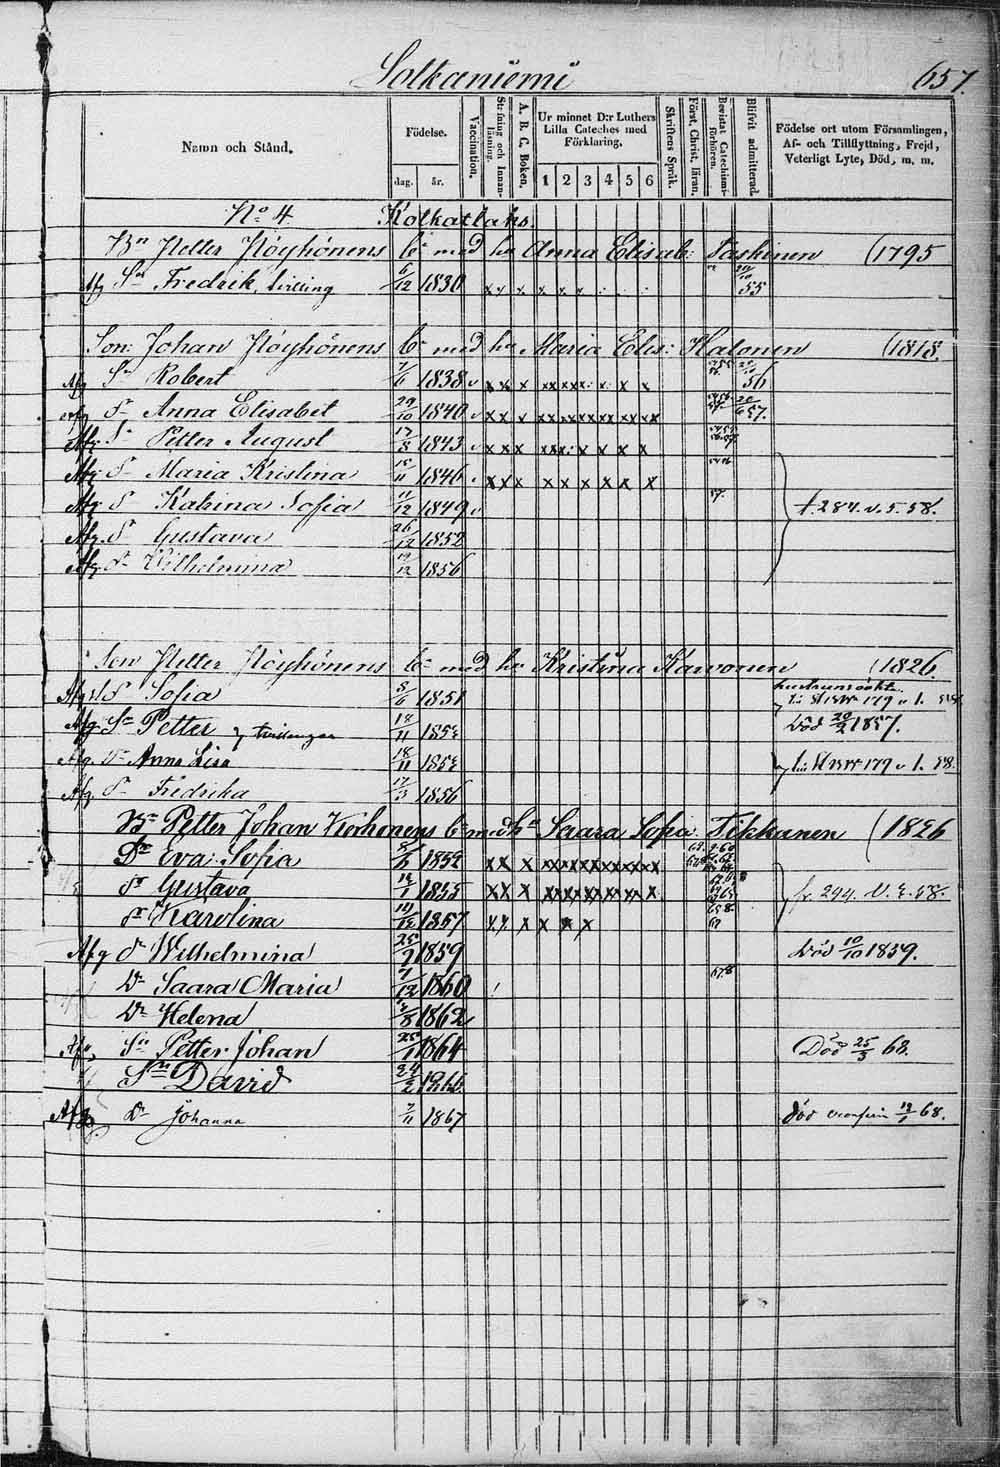 Solkaniemi 657.
Namn och Stånd.
Födelse.
dag. år.
Vaccination.
Stafning och Innanläsning.
A. B. C. Boken.
Ur minnet D:r Luthers Lilla Cateches med Förklaring.
1 2 3 4 5 6
Skriftens Språk.
Först. Christ. läran.
Bevistat Catechismiförhören.
Blifvit admitterad.
Födelse ort utom Församlingen, Af- och Tillflyttning, Frejd, Veterligt Lyte, Död, m. m.
No 4 Kolkattaho.
Bn Petter Pöyhönens bn med hu Anna Elisab: Taskinen (1795
Afg Sn Fredrik, tvilling 6/12 1830 x x x x x x 55
Son: Johan Pöyhönens bn med hu Maria Elis: Halonen (1818.
Afg Sn Robert 7/6 1838 v x x x x x x x x x 56
Afg Dr Anna Elisabet 29/10 1840 v x x x x x x x x x 20/6 57.
Afg Sn Petter August 17/8 1843 v x x x x x x x x x
Afg Dr Maria Kristina 15/11 1846 x x x x x x x x x
Afg D Katrina Sofia 11/12 1849 v 57. f. 284. v. 5. 58.
Afg. D Gustava 26/12 1852
Afg Dr Wilhelmina 19/12 1856
Son Petter Pöyhönens bn med hu Kristina Karvonen (1826
Afg Dr Sofia 8/6 1851 179
Afg Sn Petter tvillingar 18/11 1853 Död 20/2 1857.
Afg. Dr Anna Lisa 18/11 1853 179 58.
Afg. Dr Fredrika 17/3 1856
Bn Petter Johan Korhonens bn med hu Saara Sofia Tikkanen (1826
Dr Eva Sofia 8/6 1852 x x x x x x x x x
Dr Gustava 12/1 1855 x x x x x x x x x fr. 294. v. 58.
Dr Karolina 14/12 1857 x x x x x x
Afg Dr Wilhelmina 25/7 1859 Död 10/10 1859.
Dr Saara Maria 7/12 1860
Dr Helena 4/8 1862
Afg Sn Petter Johan 25/1 1864 Död 25/3 68.
Sn David 24/2 1866
Afg Dr Johanna 7/11 1867 död 19/1 68.